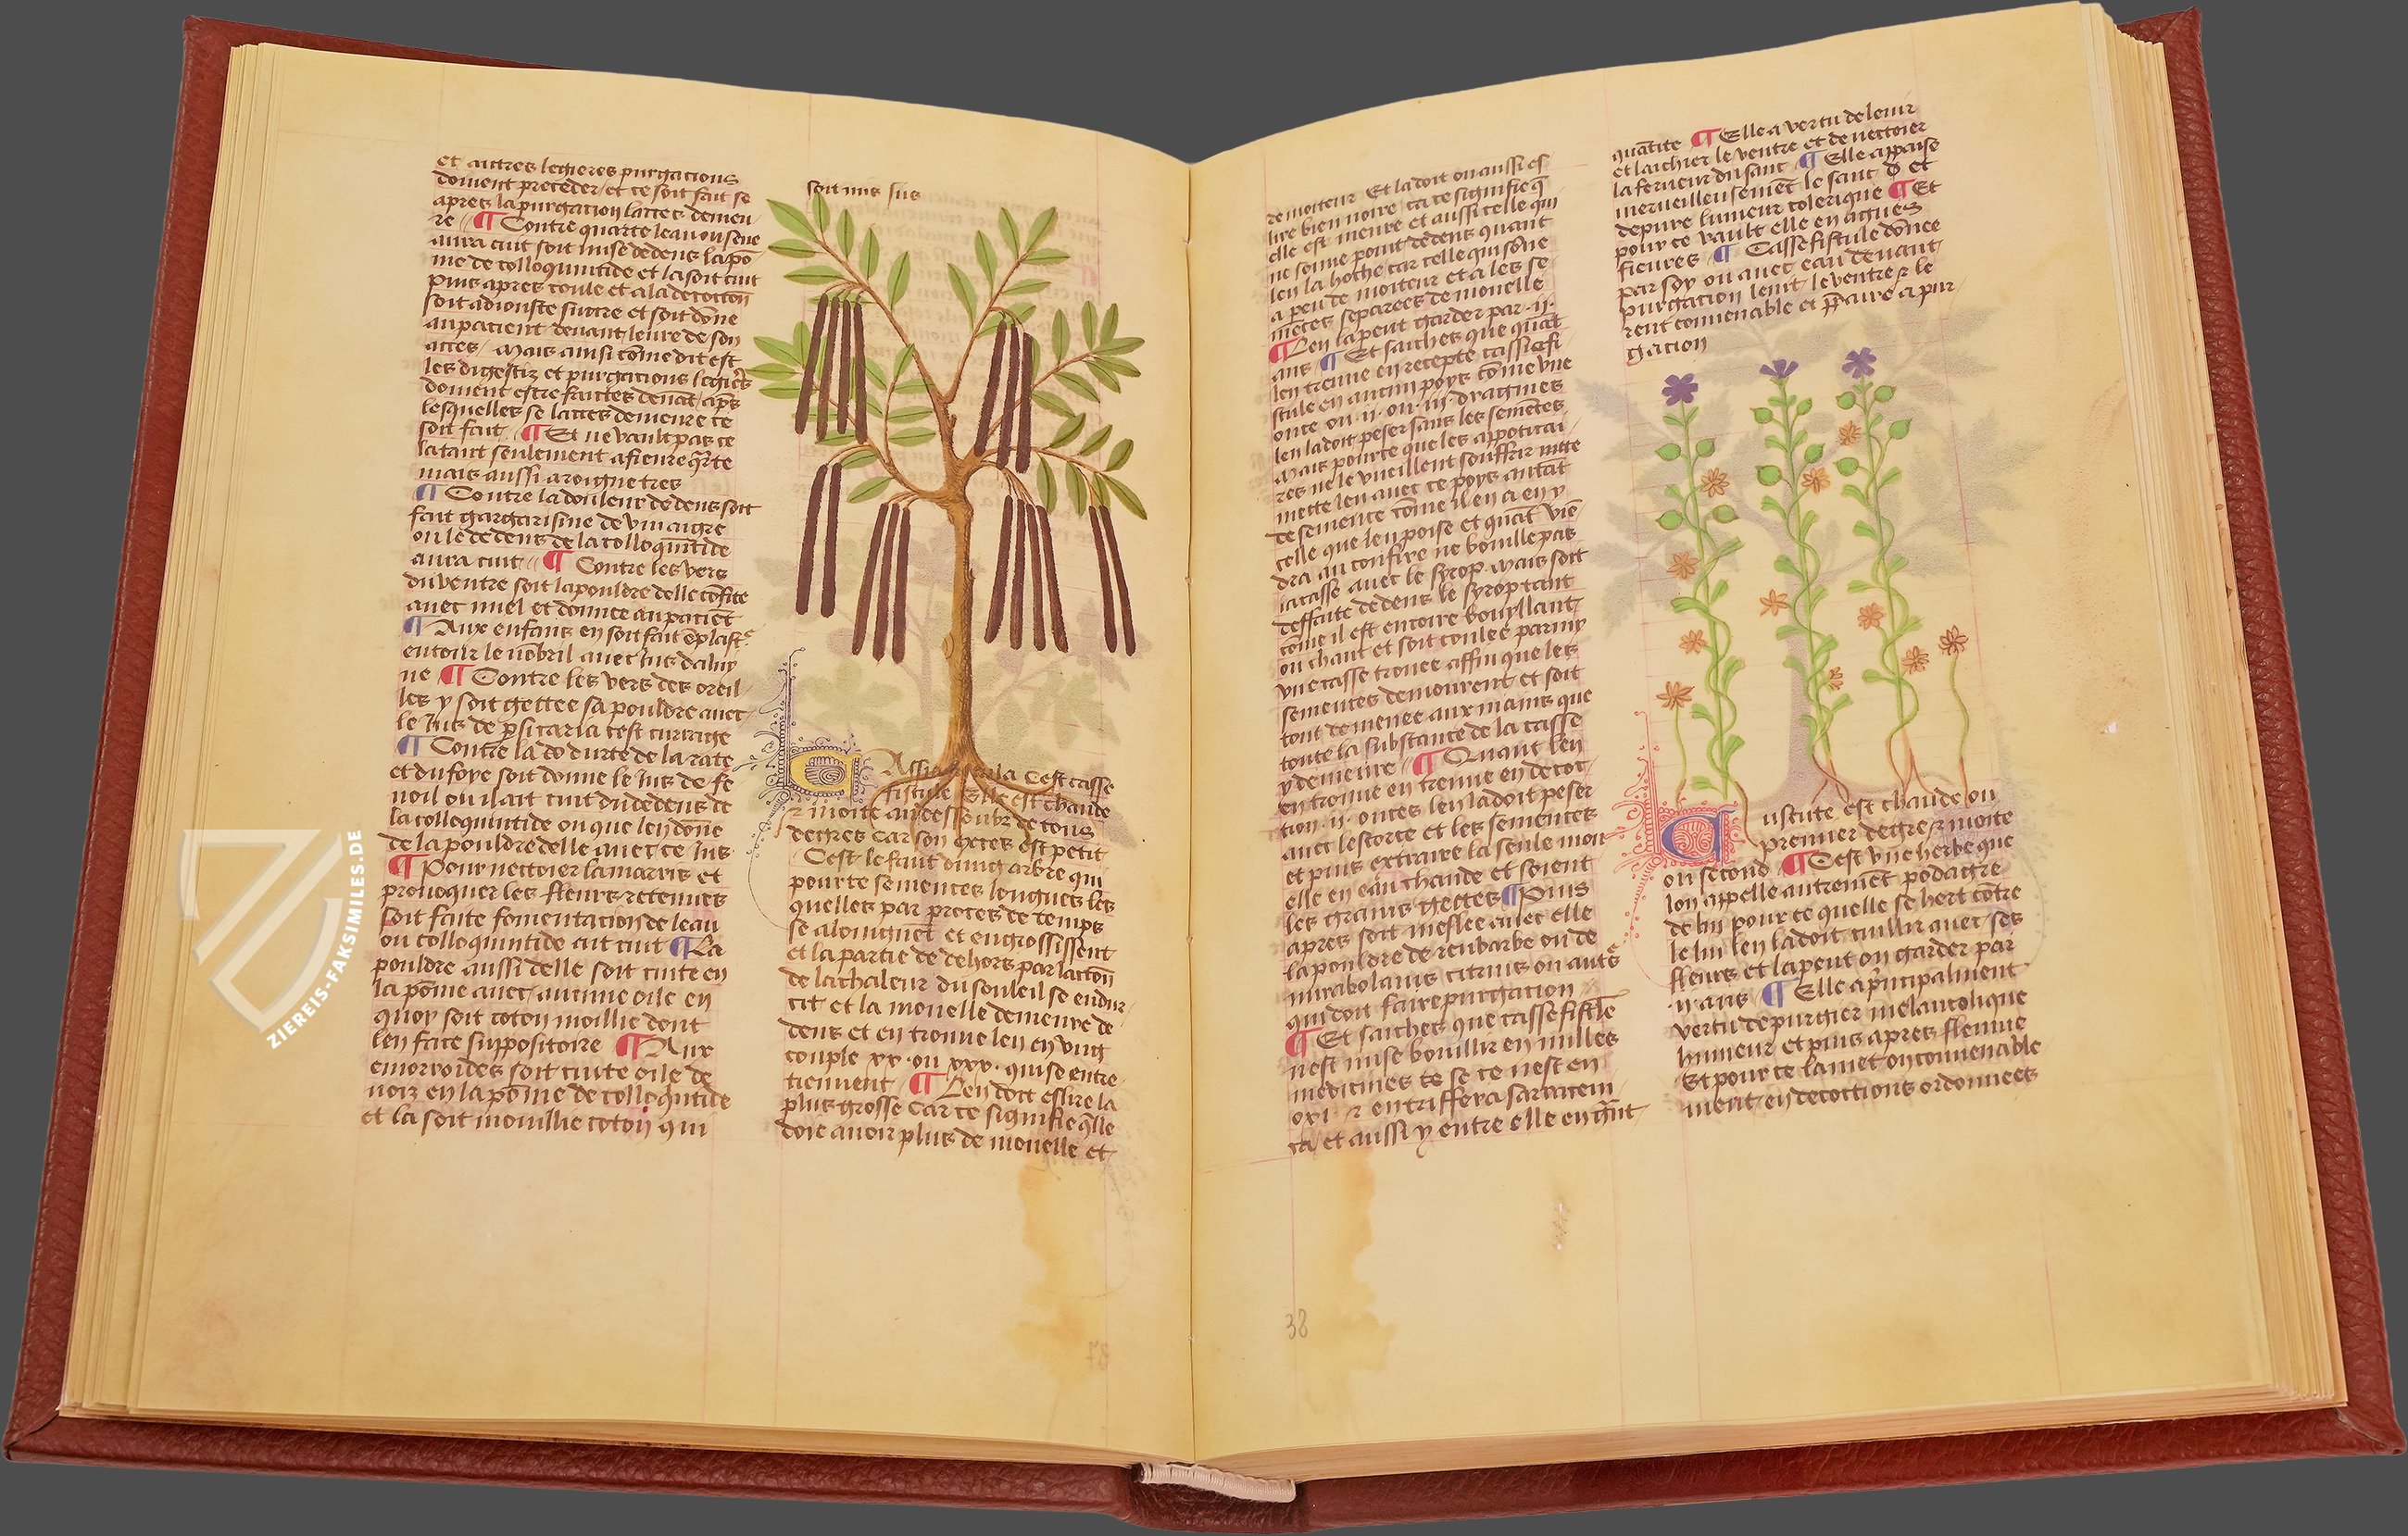 et autres legieres purgacions
doivent preceder / et ce soit fait se
apres la purgacion lactes demeu
re // ¶ Contre quarte leau ou sene
aura cuit soit mise dedens la po
me de colloquintide et la soit cuit
puis apres coule et a la decoction
soit adiouste succre et soit dōne
au pacient devant leure de son
acces / Mais ainsi cōme dit est
les digestiz et purgacions legiers
doivent estre faictes devāt / aps
lesquelles se lacces demeure ce
soit fait . ¶ Et ne vault pas ce
la tant seulement a fievre qrte
mais aussi a rongne tres
¶ Contre la douleur de dens soit
fait gargarisme de vin aigre
ou le dedens de la colloquītide
aura cuit // ¶ Contre les vers
du ventre soit la pouldre delle cōfite
avec miel et donnee au paciēt
¶ Aux enfans en soit fait eplast
entour le nōbril avec ius daluy
ne ¶ Contre les vers des oreil
les y soit gettee sa pouldre avec
le ius de psicaria cest currage
¶ Contre la do durte de la rate
et du foye soit donne le ius de fe
noil ou il ait cuit du dedens de
la colloquintide ou que len dōne
de la pouldre delle avec ce ius
¶ Pour nettoier la marris et
provoquer les fleurs retenues
soit faite fomentacion de leau
ou colloquintide ait cuit ¶ La
pouldre aussi delle soit cuite en
la pōme avec aucune oile en
quoy soit coton moillie dont
len face suppositoire ¶ Aux
emorroides soit cuite oile de
noiz en la pōme de colloqntide
et la soit mouillie coton qui
soit mis sus
Cassia fistula Cest casse
fistule Elle est chaude
⁊ moite au dessoubz de tous
degres Car son exces est petit
Cest le fruit dung arbre qui
pourte semences longues les
quelles par proces de temps
se alonguēt et engrossissent
et la partie de dehors par lactōn
de la chaleur du souleil se endur
cit et la mouelle demeure de
dens et en trouve len en ung
couple xx. ou xxx. qui se entre
tiennent ¶ Len doit eslire la
plus grosse Car ce signifie qlle
doie avoir plus de mouelle et
de moitteur Et la doit on aussi es
lire bien noire / ca ce signifie q̄
elle est meure et aussi celle qui
ne sonne point dedens quant
len la hoche car celle qui sōne
a peu de moiteur et a les se
mēces separees de mouelle
¶ Len la peut garder par .ii.
ans ¶ Et saiches que quāt
len treuve en recepte cassiefi
stule en aucun poys cōme une
once ou .ii. ou .iii. dragmes
len la doit peser sans les semēces
Mais pource que les appoticai
res ne le vueillent souffrir mitte
mette len avec ce poys autāt
de semence cōme il en a en y
celle que len poise et quāt vie
dra au confire ne bouille pas
la casse avec le syrop. Mais soit
deffaite dedens le syrop tant
cōme il est encore bouyllant
ou chaut et soit coulee parmy
une casse trouee affin que les
semences demourent et soit
tout demenee aux mains que
toute la substance de la casse
y demeure ¶ Quant len
en trouve en treuve en decoc
tion .ii. onces len la doit peser
avec lescorce et les semences
et puis extraire la seule mou
elle en eau chaude et soient
les grains gettes ¶ Puis
apres soit meslee avec elle
la pouldre de reubarbe ou de
mirabolanis citrins ou autrs
qui doit faire purgacion
¶ Et saiches que cassefistle
nest mise bouillir en nulles
medicines se se ce nest en
oxi. ⁊ en triffera sarracem
ca / et aussi y entre elle en grāt
quātite ¶ Elle a vertu de lenir
et laichier le ventre et de nettoier
la ferveur du sanc ¶ Elle appaise
merveilleusemēt le sanc ꝺ et
depure lumeur colerique ¶ Et
pour ce vault elle en agues
fievres ¶ Cassefistule dōnee
par soy ou avec eau devant
purgacion lenit le ventre ⁊ le
rent convenable et p̄pare a pur
gacion
Cuscute est chaude ou
premier degre ⁊ moite
ou second ¶ Cest une herbe que
lon appelle autremēt podagre
de lin pource quelle se hert cōtre
le lin len la doit cuillir avec ses
fleurs et la peut on garder par
.ii. ans ¶ Elle a pncipalment
vertu de purgier melancolique
humeur et puis apres fleume
Et pour ce la met on convenable
ment en decoctions ordonnees
38
ZIEREIS-FAKSIMILES.DE